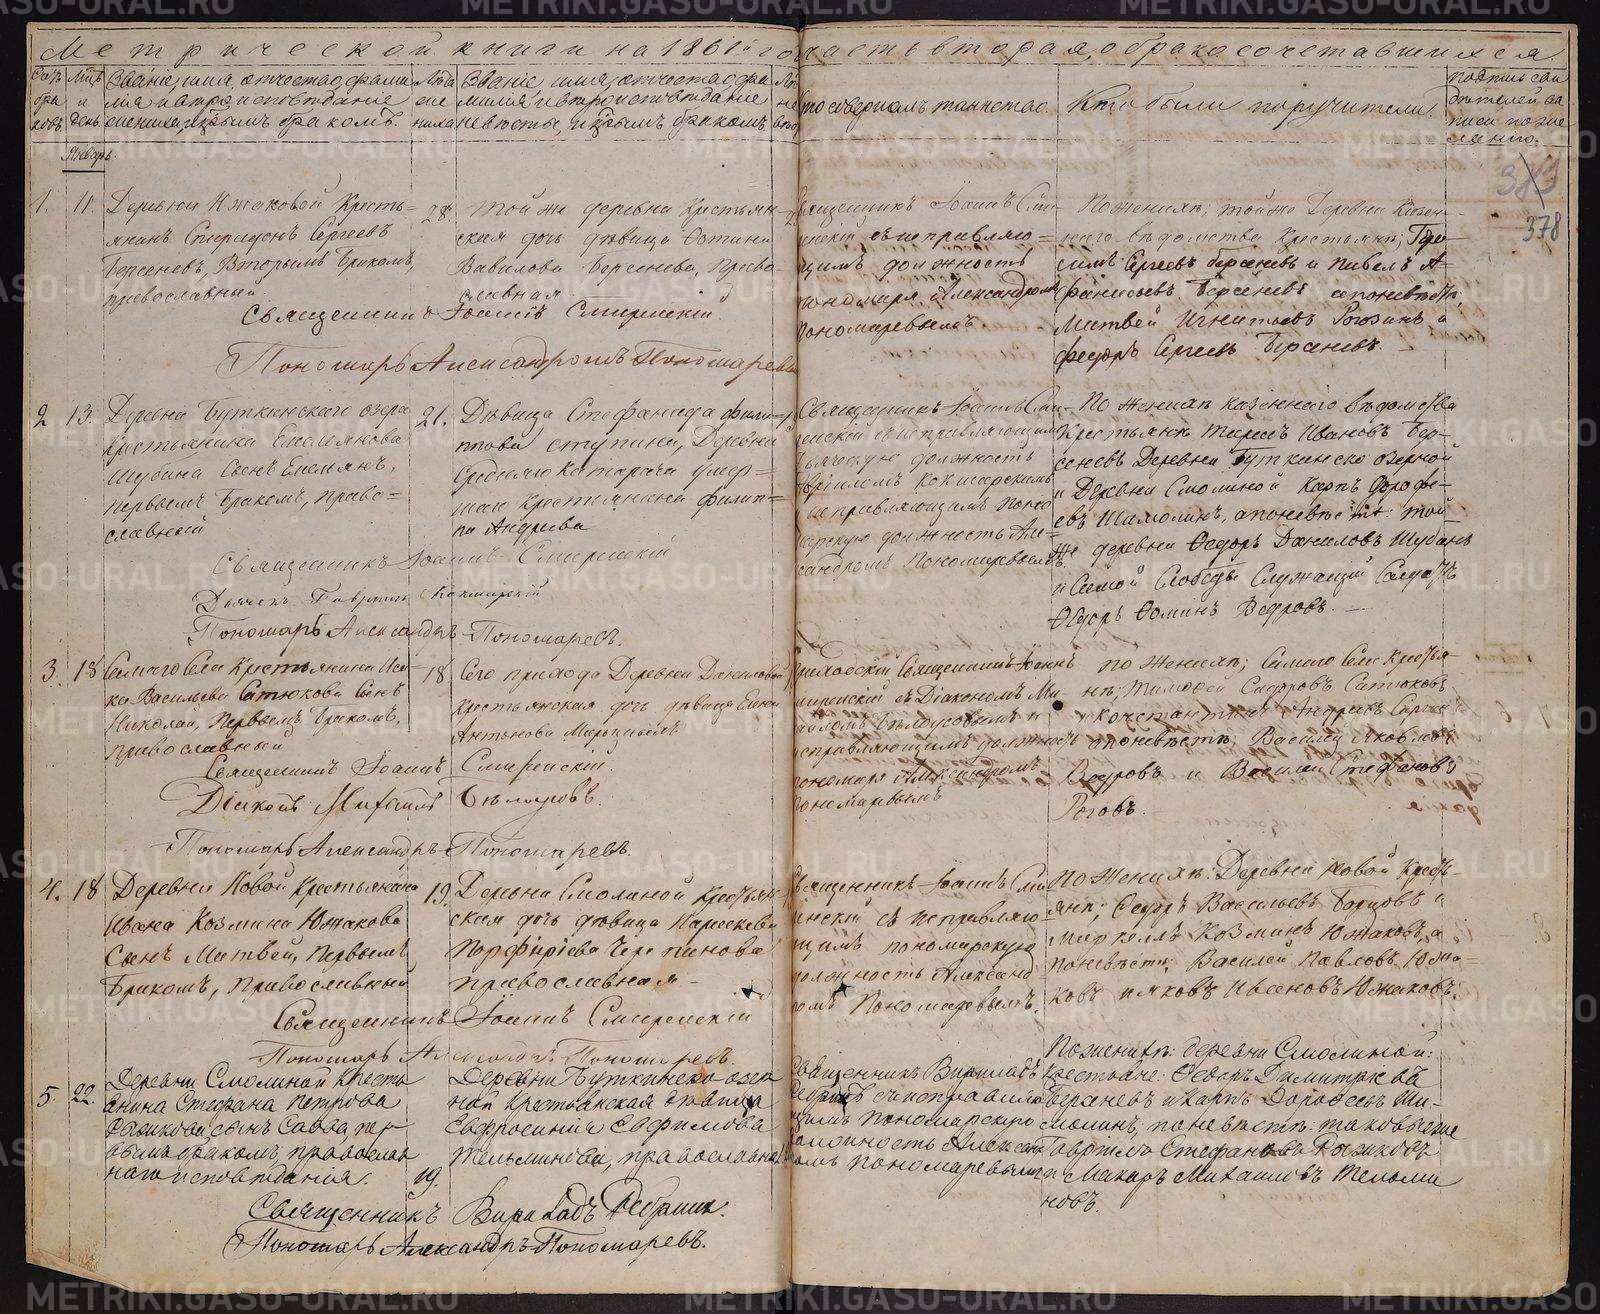 Метрической книги на 1861й годъ часть вторая, о бракосочетавшихся.
Счетъ браковъ.
Мѣсяцъ и день.
Званіе, имя, отчество, фами
лія и вѣроисповѣданіе
жениха, и кѣимъ бракомъ.
Лѣта же
ниха
Званіе, имя, отчество, фа
милія, и вѣроисповѣданіе
невѣсты, и кѣимъ бракомъ
Кто совершалъ таинство.
Кто были поручители.
Подпись сви
дѣтелей за
писи по же
ланію.
Январь.
383
378
1. 11. Деревни Южаковой Кресть=
янинъ Спиридонъ Сергеевъ
Берсеневъ, Вторымъ бракомъ,
православный
28.
той же деревни крестьян-
ская дочь дѣвица Фотинія
Вавилова Берсенева, право-
славная
Священникъ Іоаннъ Сми-
ренскій съ исправляю=
щимъ должность
пономаря Александромъ
Пономаревымъ.
По женихѣ; той же Деревни Казен-
наго вѣдомства Крестьяне; Гера-
симъ Сергеевъ Берсеневъ и Павелъ А-
фанасьевъ Берсеневъ а по невѣстѣ;
Матвей Игнатьевъ Рогозинъ и
Федоръ Сергеевъ Берсеневъ.
Священникъ Іоаннъ Смиренскій.
Пономарь Александромъ Пономаревъ
2 13. Деревни Буткинскаго озера
Крестьянина Емельянова
Шубина Сынъ Емельянъ,
первымъ бракомъ, право=
славный
21.
Дѣвица Стефанида Фили=
ппова Ступина, Деревни
Средняго Катарача умер=
шаго Крестьянина Филип=
па Андреева
Священникъ Іоаннъ Сми-
ренскій съ исправляющимъ
дьяческую должность
Гавріиломъ Кокшарскимъ
и исправляющимъ поно
марскую должность Але=
ксандромъ Пономаревымъ.
По женихѣ казеннаго вѣдомства
Крестьяне Тарасъ Ивановъ Бер-
сеневъ Деревни Буткинско Озерной
и Деревни Смолиной Карпъ Дорофе-
евъ Шимолинъ, а по невѣстѣ: той
же деревни Федоръ Даниловъ Шубинъ
и Самой Слободы Служащій Солдатъ
Федоръ Фоминъ Ведровъ. —
Священникъ Іоаннъ Смиренскій
Дьячекъ Гавріилъ Кокшарскій
Пономарь Александръ Пономаревъ.
3. 18 Самаго Села Крестьянина Иса-
ка Васильева Сатюкова Сынъ
Николай, Первымъ бракомъ,
православный
18.
Сего прихода Деревни Даниловой
Крестьянская дочь дѣвица Елена
Антонова
Приходскій Священникъ Іоаннъ
Смиренскій съ Діакономъ Ми-
хаиломъ Бѣлоусовымъ и
исправляющимъ должность
пономаря Александромъ
Пономаревымъ
По женихѣ; Самаго Села Крестья-
не; Тимофей Сидоровъ Сатюковъ
и Константинъ Андреевъ
а по невѣстѣ; Василій Яковлевъ
Ведровъ и Василій Стефановъ
Роговъ.
Священникъ Іоаннъ Смиренскій.
Діаконъ Михаилъ Бѣлоусовъ.
Пономарь Александръ Пономаревъ.
4. 18 Деревни Новой Крестьянина
Ивана Козмина Южакова
Сынъ Матвей, Первымъ
Бракомъ, Православный
19.
Деревни Смолиной Крестьян-
ская дочь дѣвица Параскева
Порфиріева Черепанова
православная -
Священникъ Іоаннъ Сми
ренскій съ исправляю=
щимъ пономарскую
должность Александ
ромъ Пономаревымъ.
По Женихѣ: Деревни Новой Кресть-
яне; Федоръ Васильевъ Барцовъ и
Маркелъ Козминъ Южаковъ, а
по невѣстѣ; Василей Павловъ Южа-
ковъ и Яковъ Ивановъ Южаковъ.
Священникъ Іоаннъ Смиренскій
Пономарь Александръ Пономаревъ.
5. 22. Деревни Смолиной Кресть
янина Стефана Петрова
Рыжкова, сынъ Савва, пер-
вымъ бракомъ, православ
наго исповѣданія.
19.
Деревни Буткинско-озер
ной Крестьянская дѣвица
Евфросинія Евфимова
Тельминова, православная
Священникъ Вириладъ
Ребринъ съ исправляю
щимъ пономарскую
должность Александ
ромъ Пономаревымъ
По женихѣ: деревни Смолиной:
крестьяне: Федоръ Димитріевъ
Берсеневъ и Карпъ Дорофеевъ Ши-
молинъ; по невѣстѣ: таковые же
Гавріилъ Стефановъ Рыжковъ
и Макаръ Михаиловъ Тельми
новъ.
Священникъ Вириладъ Ребринъ.
Пономарь Александръ Пономаревъ.